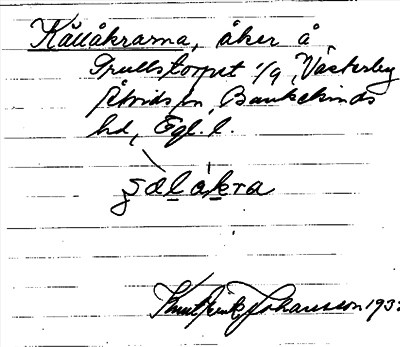 Källåkrarna, åker å
Spullstorpet 1/9, Västerby
Åtvids sn, Bankekinds
hd, Ögl. l.
sälåkra
Knut Johansson 193